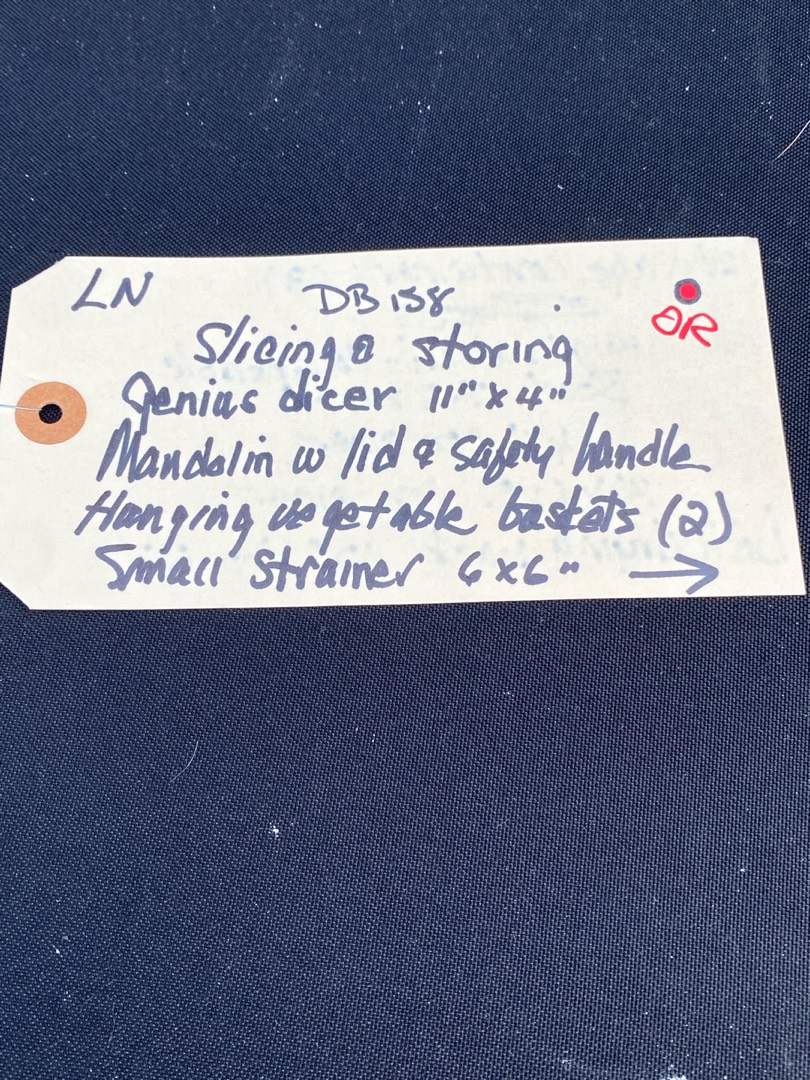 LN
DB 158
OR
Slicing & storing
Genius dicer 11" x 4"
Mandolin w lid & safety handle
Hanging vegetable baskets (2)
Small strainer 6 x 6" →